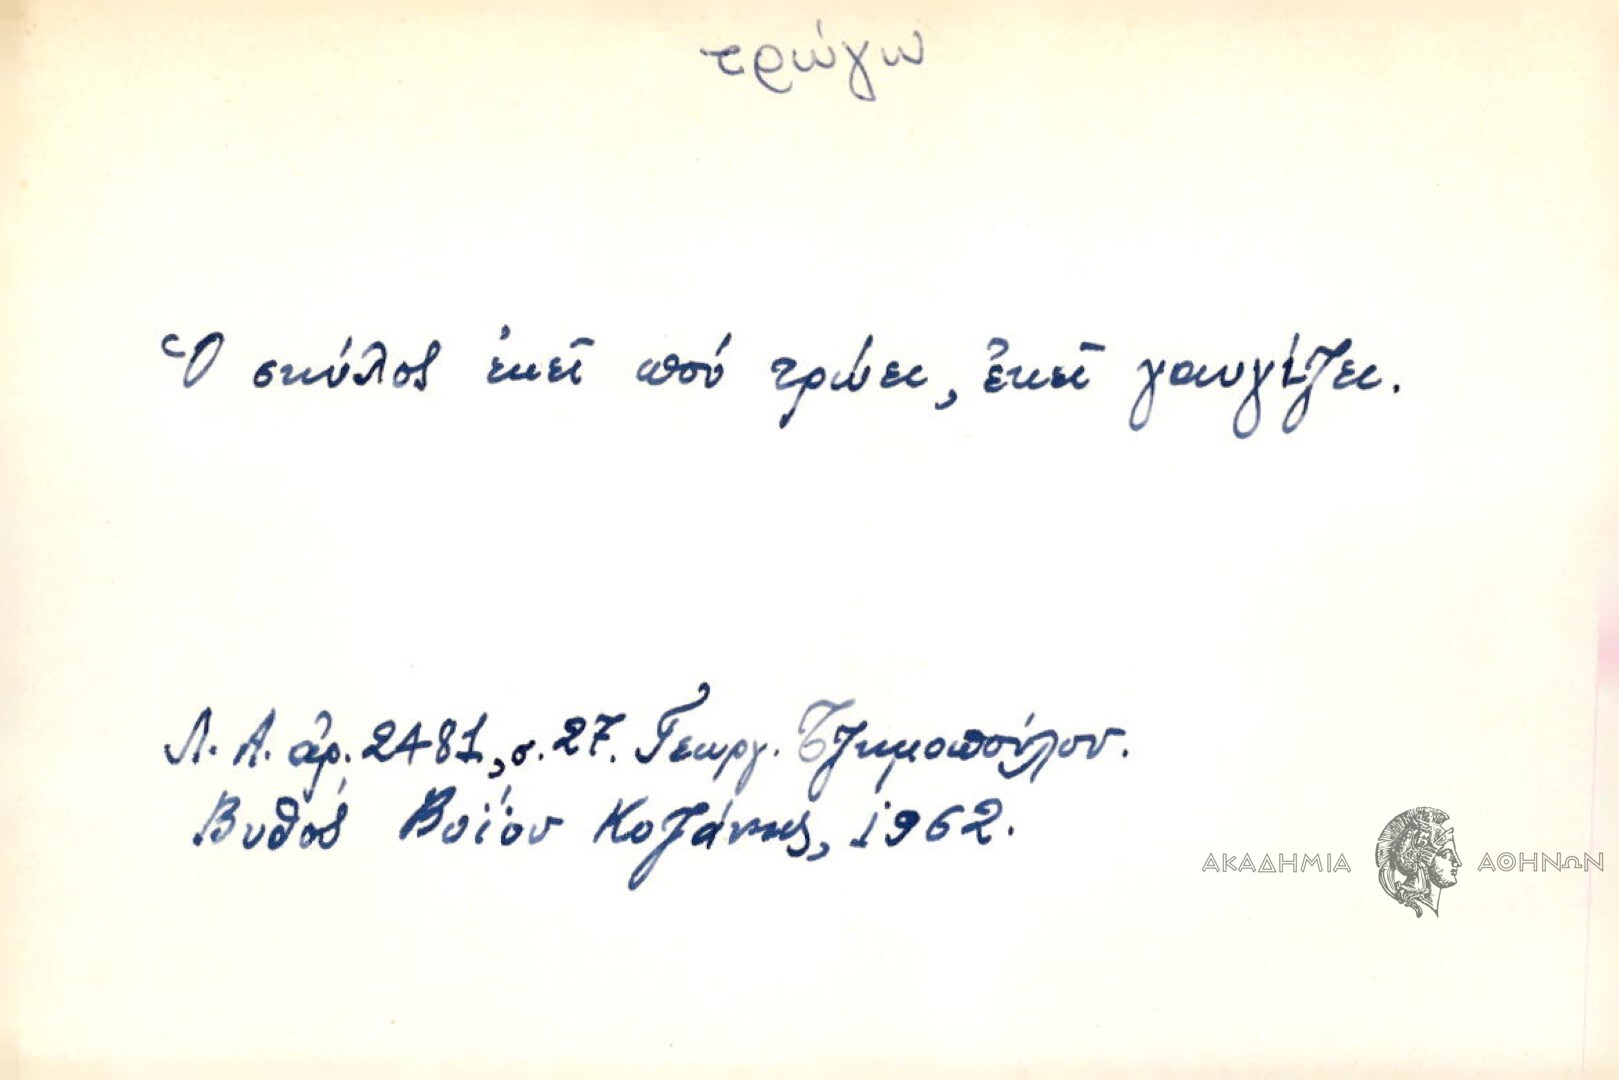 τρώγω
Ὁ σκύλος ἐκεῖ ποὺ τρώει, ἐκεῖ γαυγίζει.
Λ. Α. ἀρ. 2481, σ. 27. Γεωργ. Τζημοπούλου.
Βυθὸς Βοΐου Κοζάνης, 1962.
ΑΚΑΔΗΜΙΑ ΑΘΗΝΩΝ